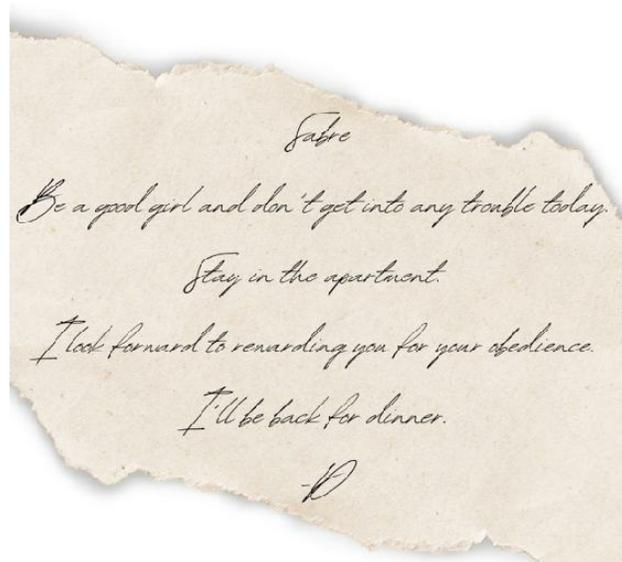 Sabre
Be a good girl and don't get into any trouble today.
Stay in the apartment.
I look forward to rewarding you for your obedience.
I'll be back for dinner.
-D